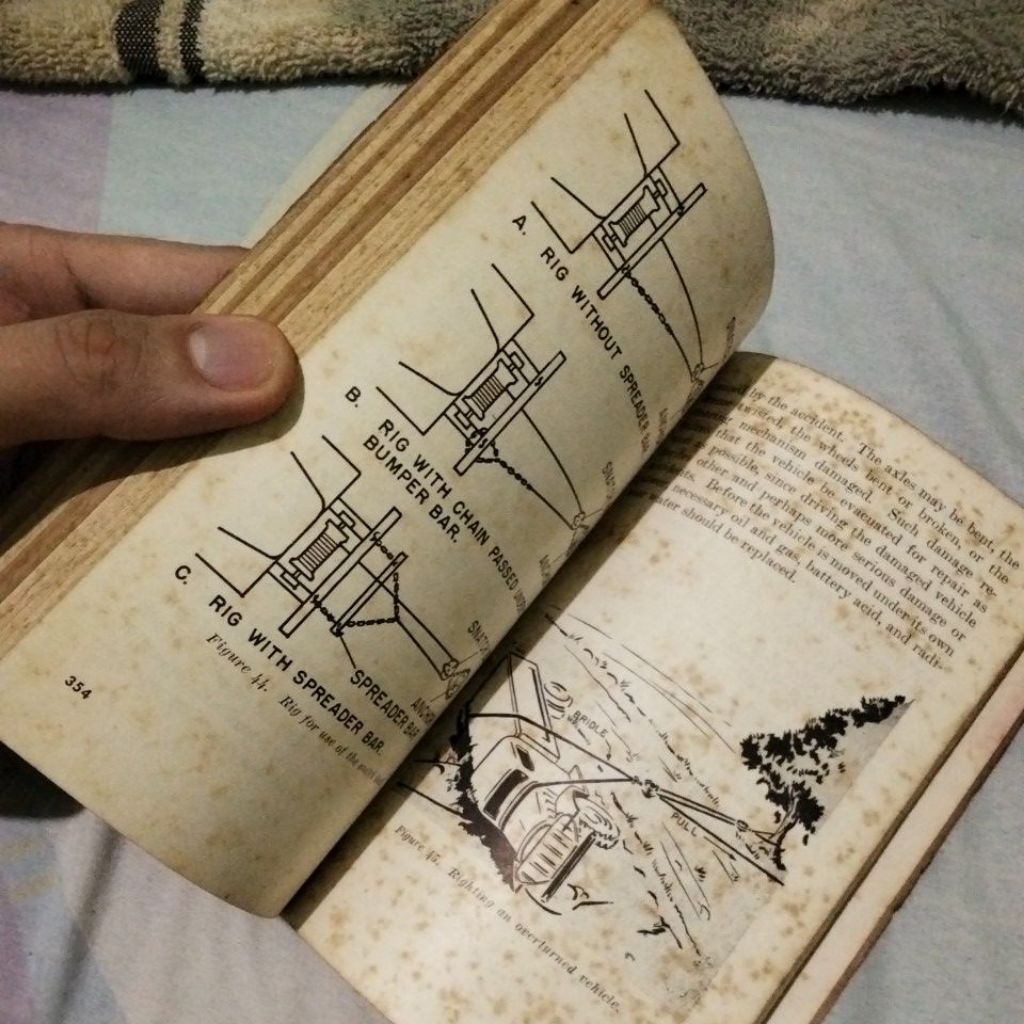 A. RIG WITHOUT SPREADER BAR
B. RIG WITH CHAIN PASSED
BUMPER BAR.
SPREADER BAR
C. RIG WITH SPREADER BAR.
Figure 44. Rig for use of the
354
by the accident. The axles may be bent, the
twisted, the wheels bent or broken, or the
mechanism damaged. Such damage re-
that the vehicle be evacuated for repair as
possible, since driving the damaged vehicle
other and perhaps more serious damage or
Before the vehicle is moved under its own
necessary oil and gas, battery acid, and radi-
water should be replaced.
BRIDLE
PULL
Figure 45. Righting an overturned vehicle.